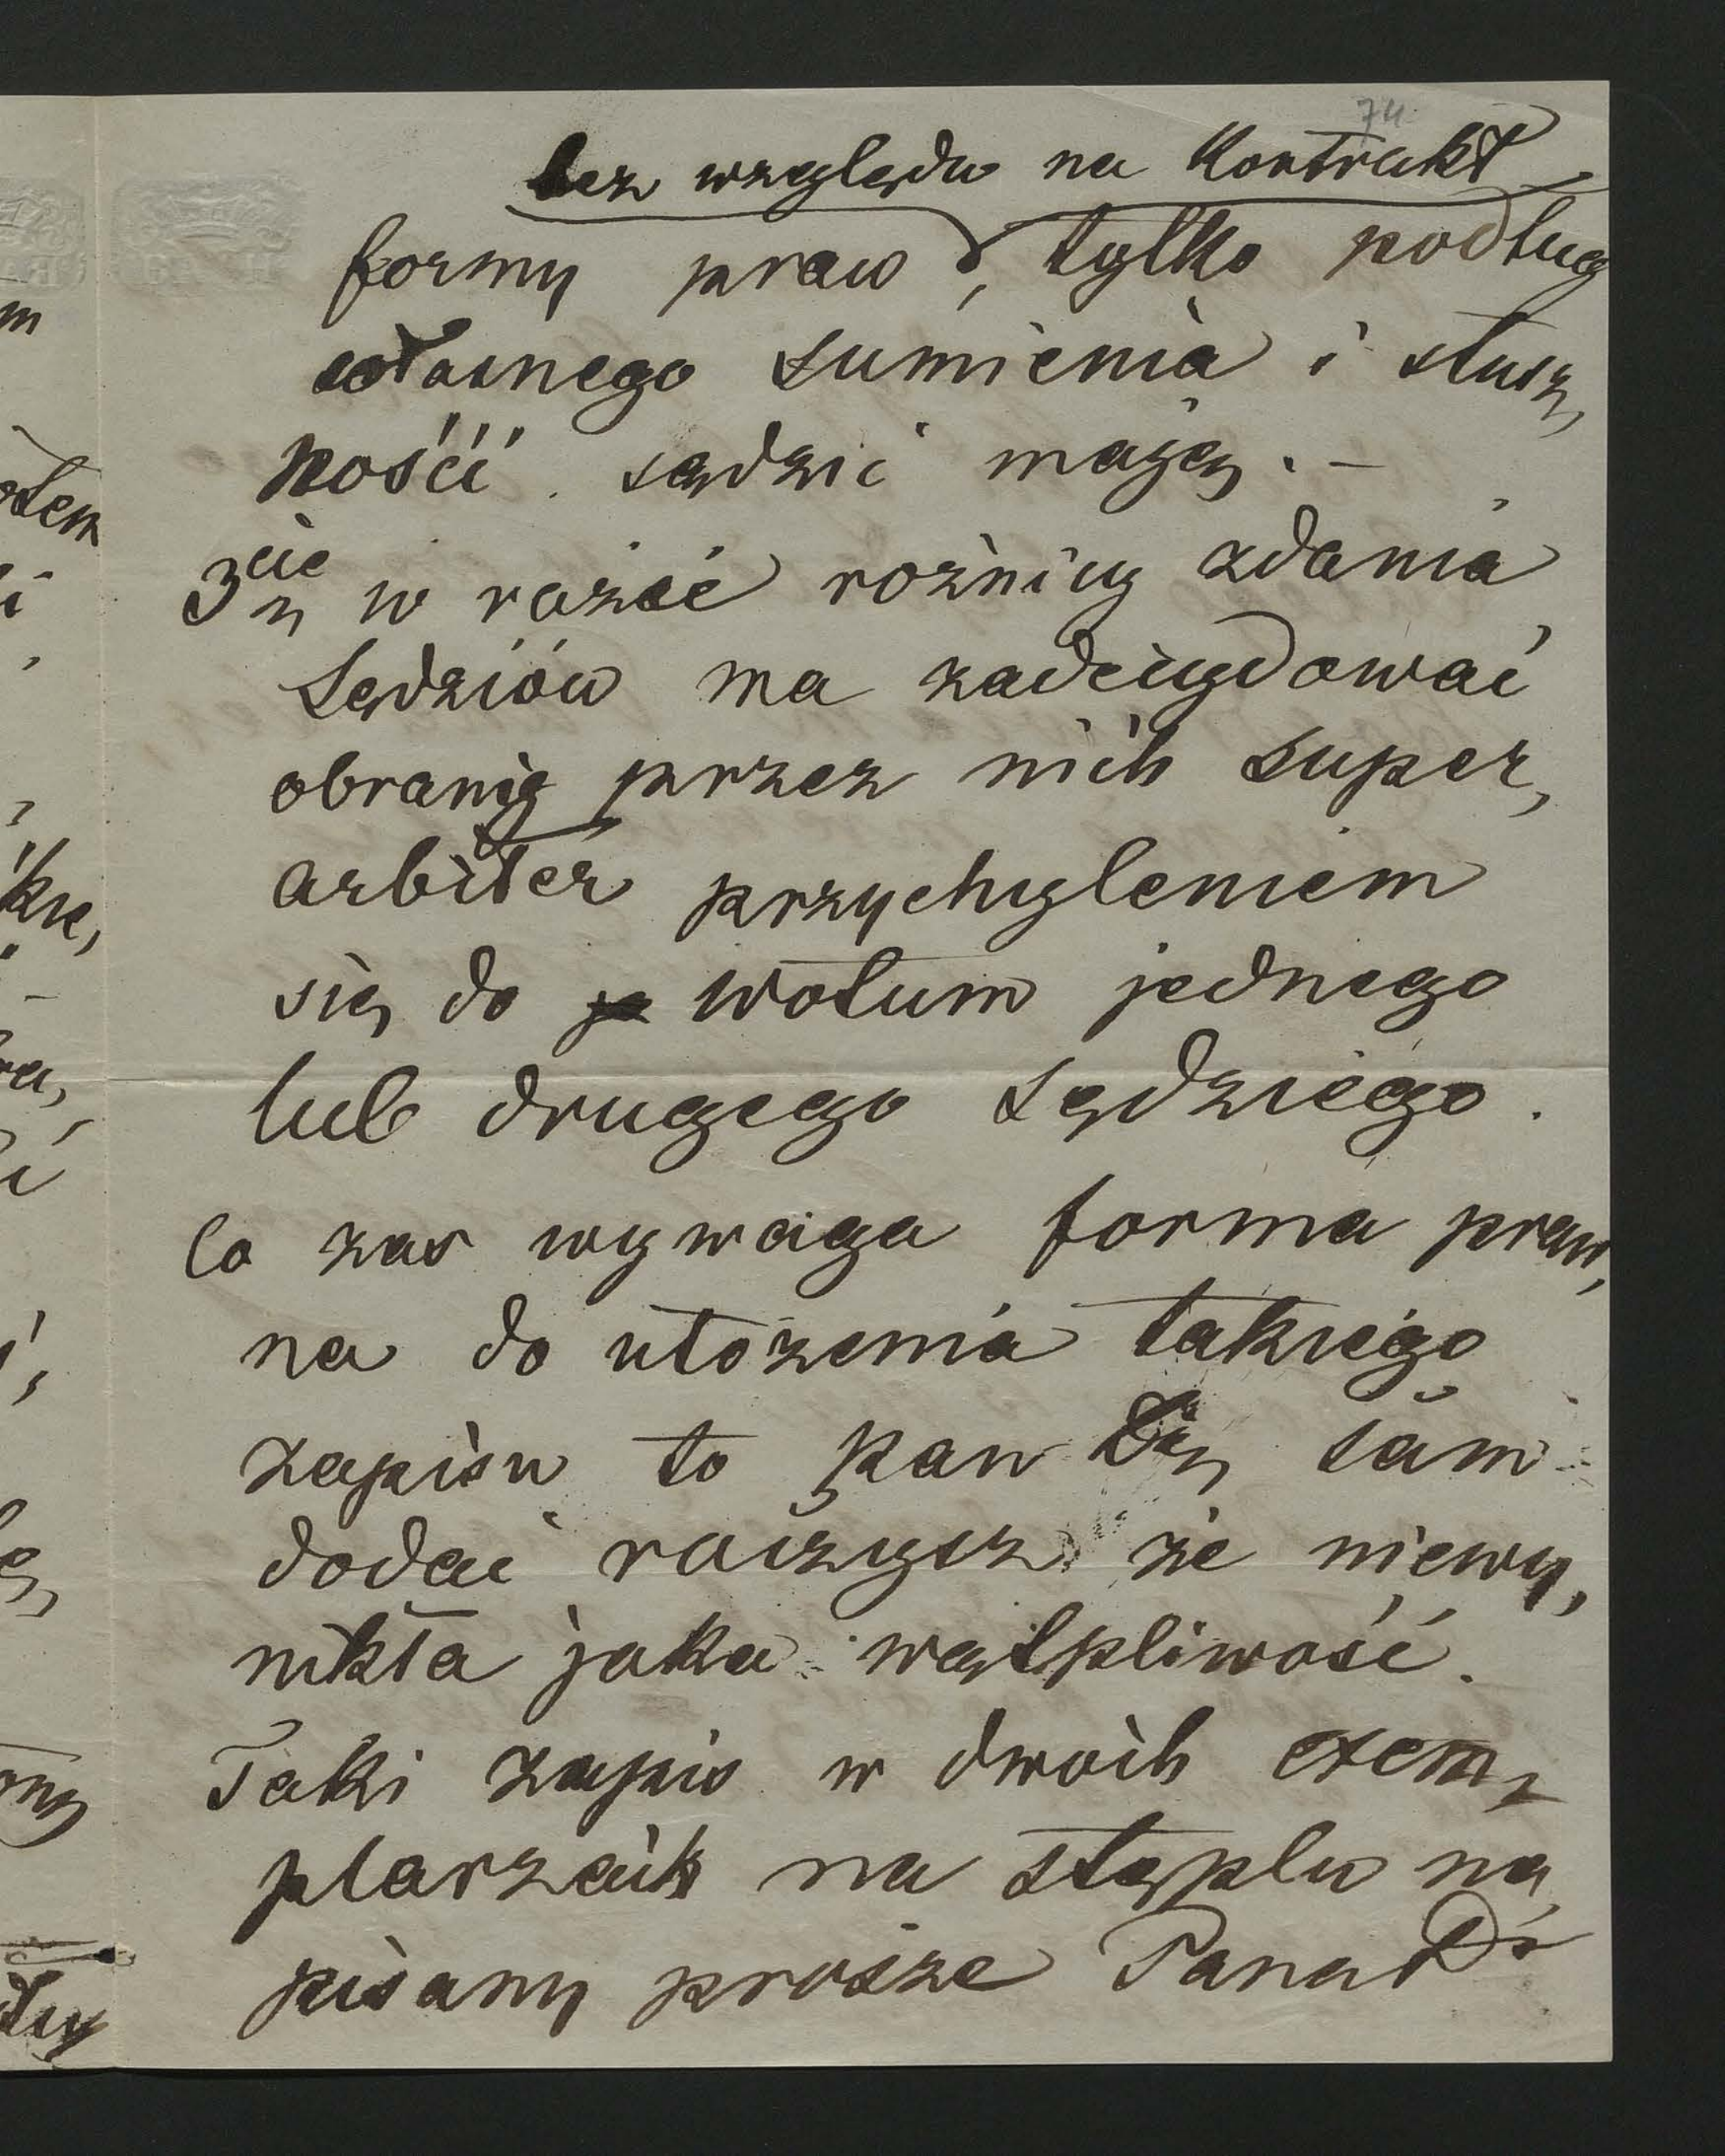 74
bez względu na Kontrakt
formy praw, tylko podług
własnego sumienia i słusz,
ności sądzić mają. –
3cie w razie rożnicy zdania
Sędziów ma zadecydować
obrany przez nich super,
arbiter przychyleniem
się do wotum jednego
lub drugego sędziego.
Co zas wymaga forma praw,
na do ułożenia takiego
zapisu to pan sam
dodać raczysz że niewy,
nikła jaka wątpliwość.
Taki zapis w dwóch exem,
plarzach na stęplu na,
pisany prosze Pana Dr